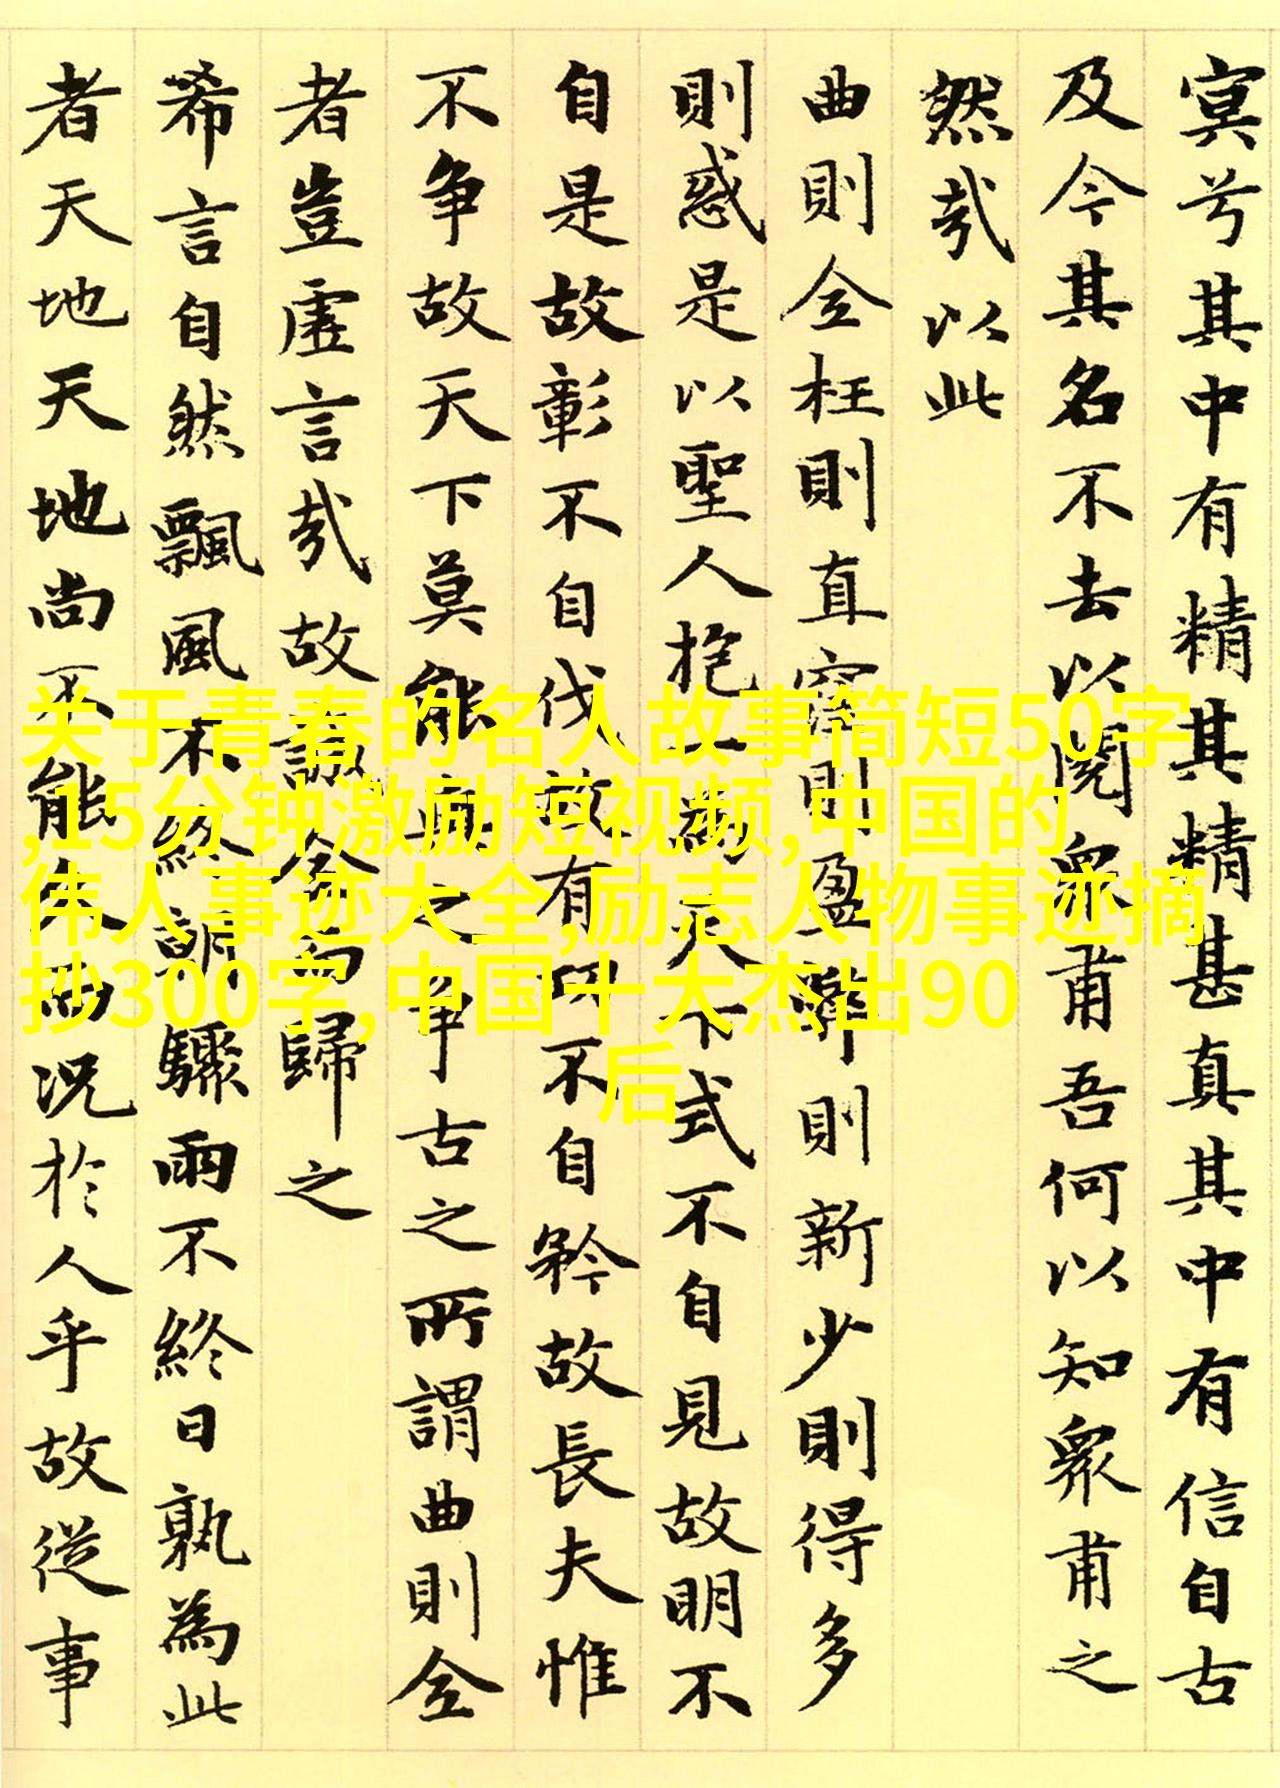 冥兮其中有精其精甚真其中有信自古
及今其名不去以閱衆甫吾何以知衆甫之
然哉以此
曲則全枉則直窪則盈弊則新少則得多
則惑是以聖人抱一為天下式不自見故明不
自是故彰不自伐故有功不自矜故長夫惟
不争故天下莫能與之争古之所謂曲則全
者豈虛言哉故誠全而歸之
希言自然飄風不終朝驟雨不終日孰為此
者天地天地尚不能久而況於人乎故從事
关于青春的名人故事简短50字
,15分钟激励短视频,中国的
伟人事迹大全,励志人物事迹摘
抄300字,中国十大杰出90
后